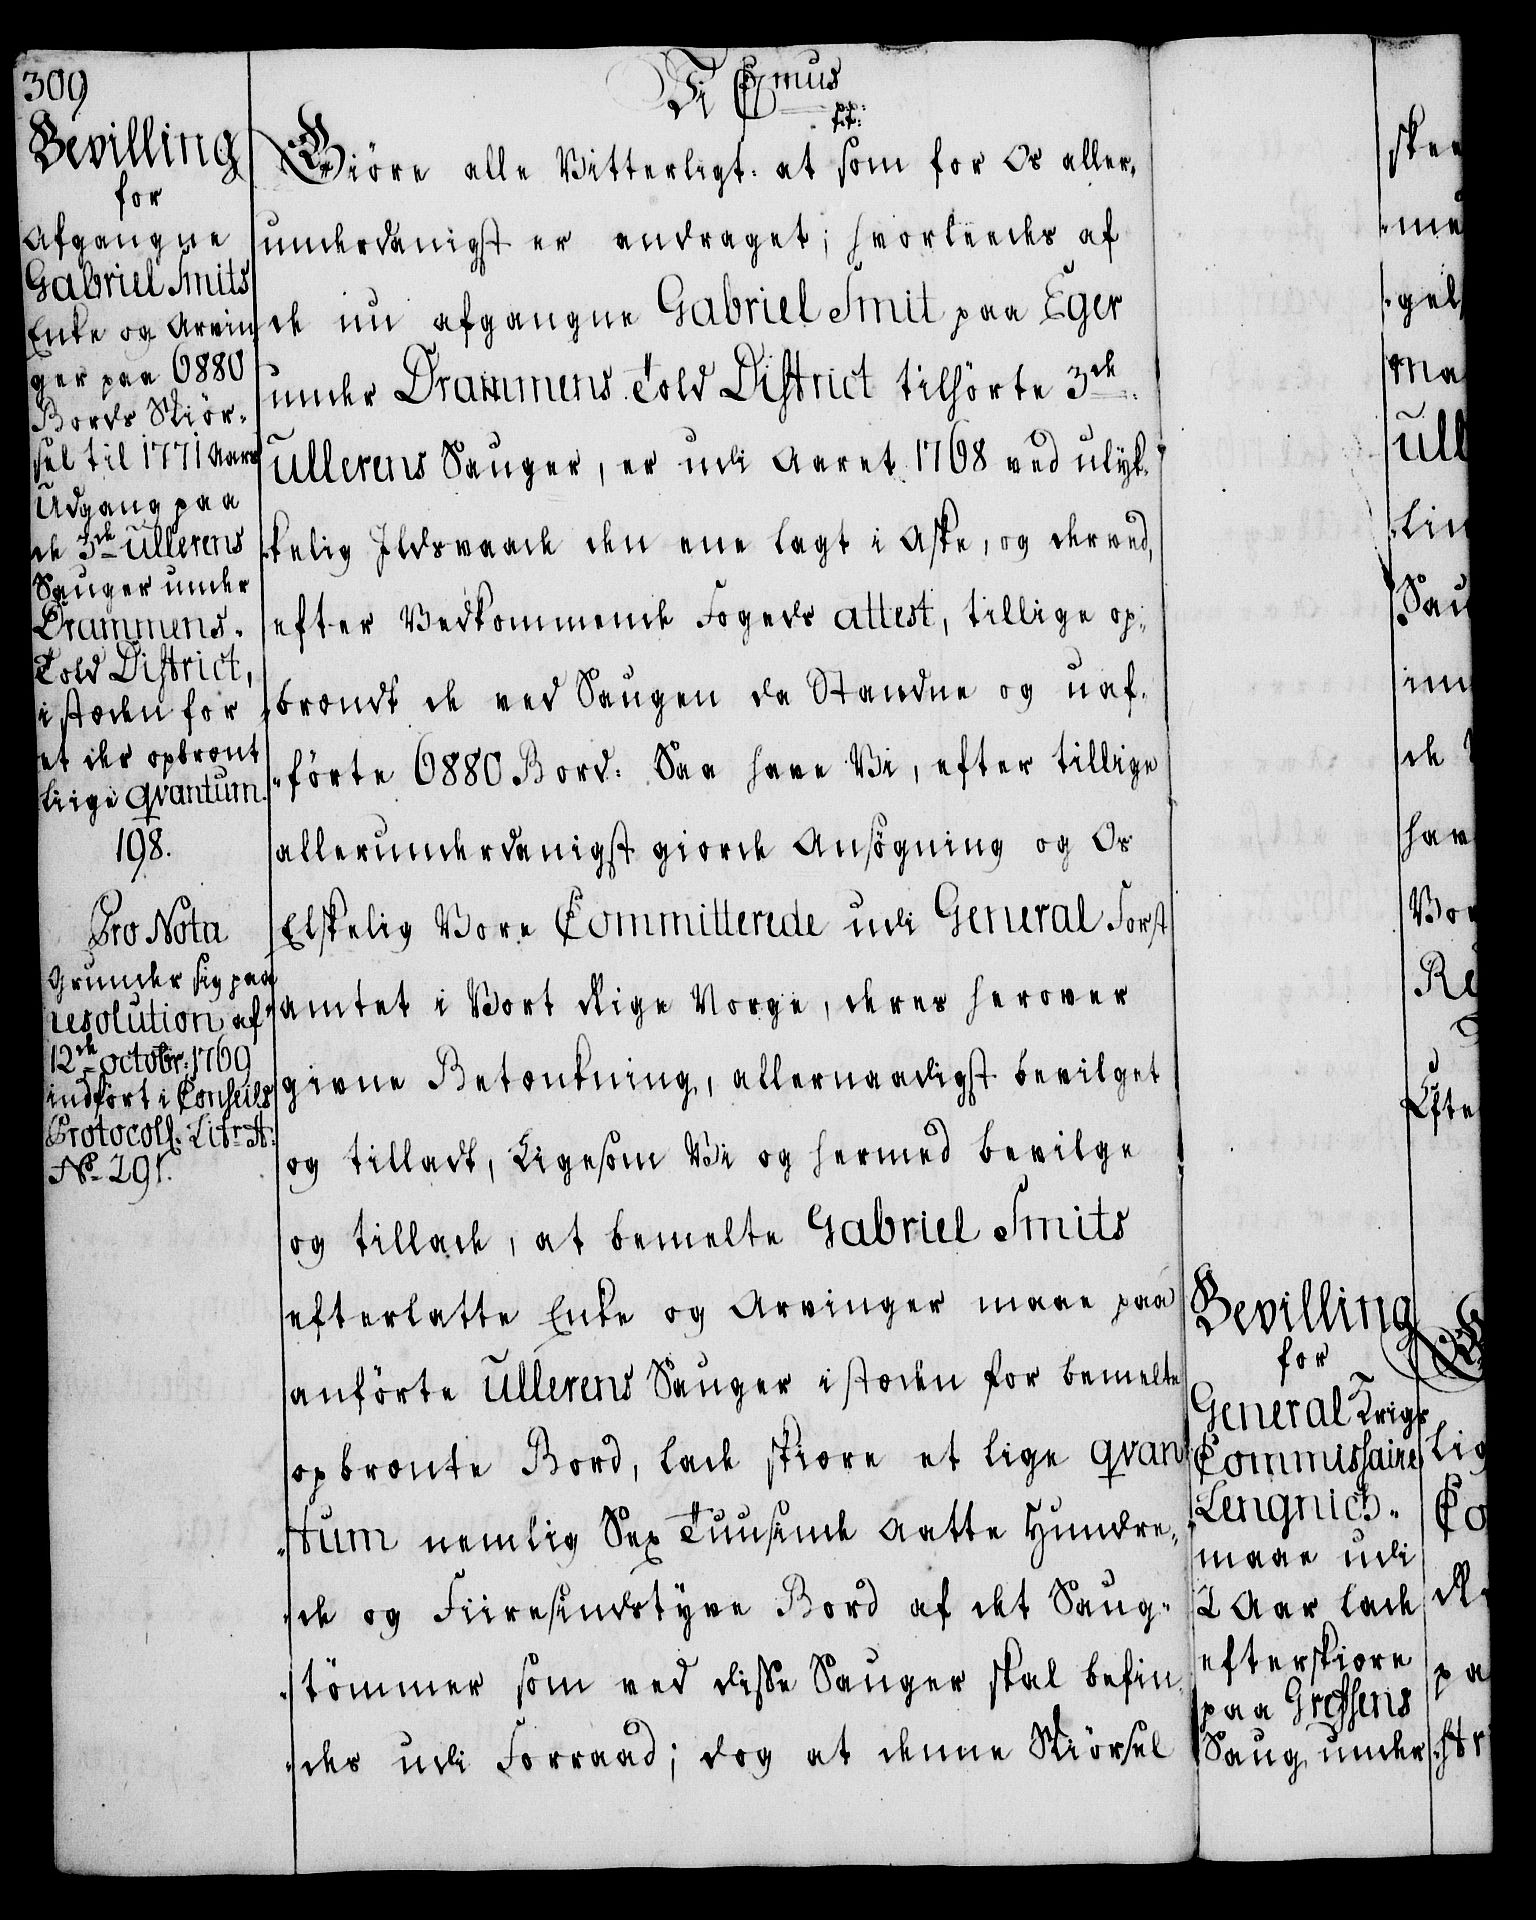 309
Vi C7mus
p.p:
t:t:
Bevilling
for
Afgangne
Gabriel Smits
Enke og Arvin
ger paa 6880
Bords Skiör-
sel til 1771 Aars
Udgang paa
de 3de Ullerens
Sauger under
Drammens-
Told District,
i stæden for
et der opbrænt
liige qvantum.
198.
Pro Nota
Grunder sig paa
resolution af
12te octobr: 1769
indfört i Conseils
Protocoll. Litr A.
No 291.
Giöre alle Vitterligt: at som for Os aller-
underdanigst er andraget; hvorleedes af
de nu afgangne Gabriel Smit paa Eger
under Drammens Told District tilhörte 3de
Ullerens Sauger, er udi Aaret 1768 ved ulyk-
kelig Ildsvaade den ene lagt i Aske, og derved,
efter Vedkommende Fogeds attest, tillige op-
brændt de ved Saugen da Standne og uaf-
förte 6880 Bord: Saa have Vi, efter tillige
allerunderdanigst giorde Ansögning og Os
Elskelig Vore Committerede udi General Forst
amtet i Vort Rige Norge, deres herover
givne Betænkning, allernaadigst bevilget
og tilladt, Ligesom Vi og hermed bevilge
og tillade, at bemelte Gabriel Smits
efterlatte Enke og Arvinger maae paa
anförte Ullerens Sauger i stæden for bemelte
opbrænte Bord, lade skiære et lige qvan
tum nemlig Sex Tuusinde Aatte Hundre-
de og Fiiresindstyve Bord af det Saug-
tömmer som ved disse Sauger skal befin-
des udi Forraad; dog at denne Skiörsel
Bevilling
for
General Krigs
Commissaire
Lengnich-
maae udi
2 Aar lade
efterskiære
paa
Saug under
skee
me
gel
ma
Ull
lin
Sau
in
de
hav
Vor
Re
Efte
G
lig
Co
R
pa